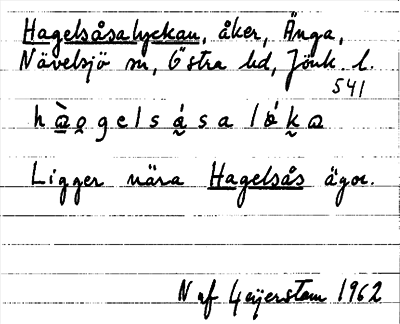 Hagelsåsalyckan, åker, Änga,
Nävelsjö sn, Östra hd, Jönk. l.
541
Ligger nära Hagelsås ägor.
N af Geijerstam 1962